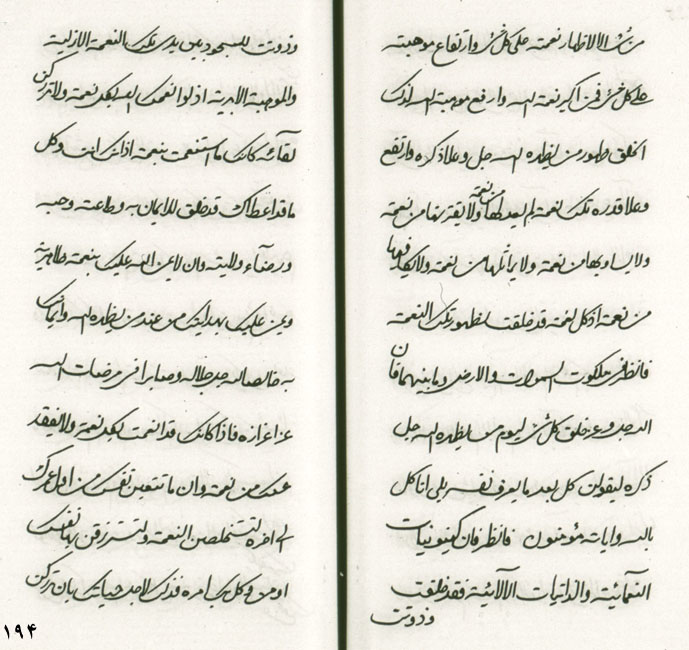 من شئون الالاظهار نعمته على كل شئ وارتفاع موهبته
على كل شئ فمن اكبر نعمة الله وارفع موهبة الله لذلك
الخلق ظهور من يظهره الله جل وعلا ذكره وارتفع
وعلا قدره تلك نعمة لم يعدلها من نعمة ولا يقترنها من نعمة
ولا يساويها من نعمة ولا يماثلها من نعمة ولا يكافيها
من نعمة اذ كل نعمة قد خلقت لظهور تلك النعمة
فانظر فى ملكوت السموات والارض وما بينهما فان
الله جل وعز خلق كل شئ ليوم من يظهره الله جل
ذكره ليقولن كل بعد ما يعرف نفسه بلى انا كل
بالله واياته مؤمنون فانظر فان كينونيات
النعمائية والذاتيات الالائية فقد خلقت
وذوتت
وذوتت للسجود بين يدى تلك النعمة الازلية
والموهبة الابدية اذ لو انعمك الله بكل نعمة ولا تدركن
لقائه كانك ما استنعمت بنعمة اذ انك انت وكل
ما قد اعطاك قد خلق للايمان به وطاعته وحبه
ورضاء ولايته وان لا يمن الله عليك بنعمة ظاهرية
ويمن عليك بهدايتك من عند من يظهره الله وايمانك
به خالصا لله جل جلاله وصابرا فى مرضات الله
عز اعزازه فاذا كانك قد انعمت بكل نعمة ولا يفقد
عنك من نعمة وان ما تتعين نفسك من اول عمرك
الى اخره لتستخلصن النعمة ولتسترزقن بها نفسك
او من وكل بك امره فذلك لاجل حياتك بان تدركن
۱۹۴